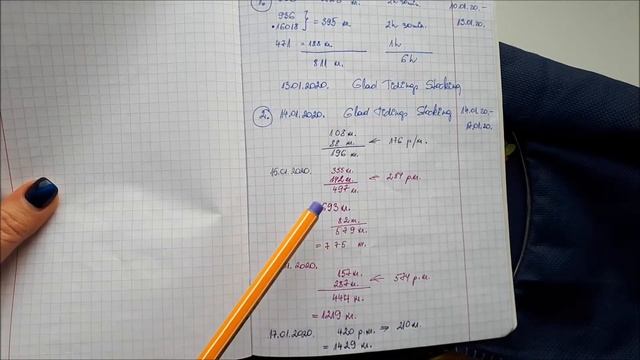 1.
2h 30min
10.01.20.-
936
•16018 } = 395 м.
2h 30min.
13.01.20.
471 = 188 м.
1h
811 м.
6h
13.01.2020. Glad Tidings Stocking
2. 14.01.2020. Glad Tidings Stocking
14.01.20.-
17.01.20.
108 м.
88 м.
196 м.
← 176 р/м.
15.01.2020.
355 м.
142 м.
497 м.
← 284 р.м.
693 м.
82 м.
579 м.
= 775 м.
.2020.
157 м.
287 м.
444 м.
← 574 р.м.
= 1219 м.
17.01.2020. 420 р.м. ⇒ 210 м.
= 1429 м.